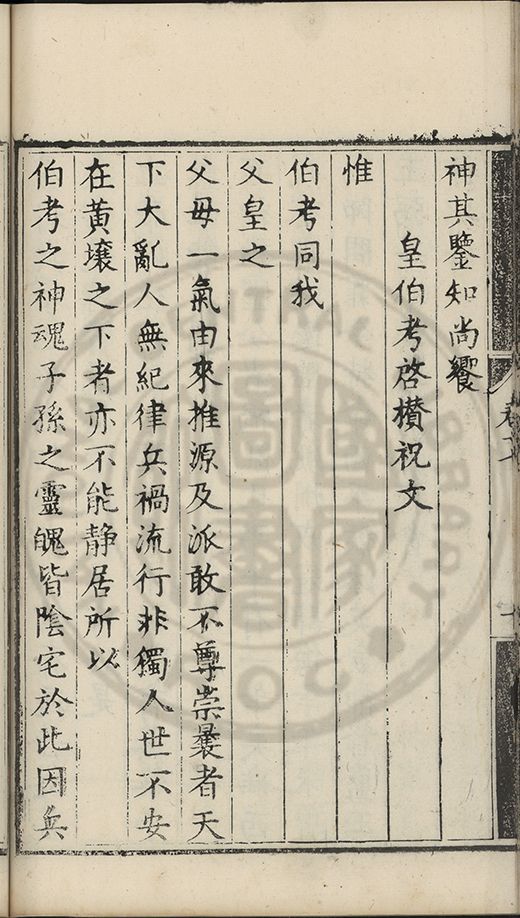 神其鑒知尚饗
皇伯考啓攅祝文
惟
伯考同我
父皇之
父母一氣由來推源及派敢不尊崇曩者天
下大亂人無紀律兵禍流行非獨人世不安
在黄壤之下者亦不能静居所以
伯考之神魂子孫之靈魄皆陰宅於此因兵